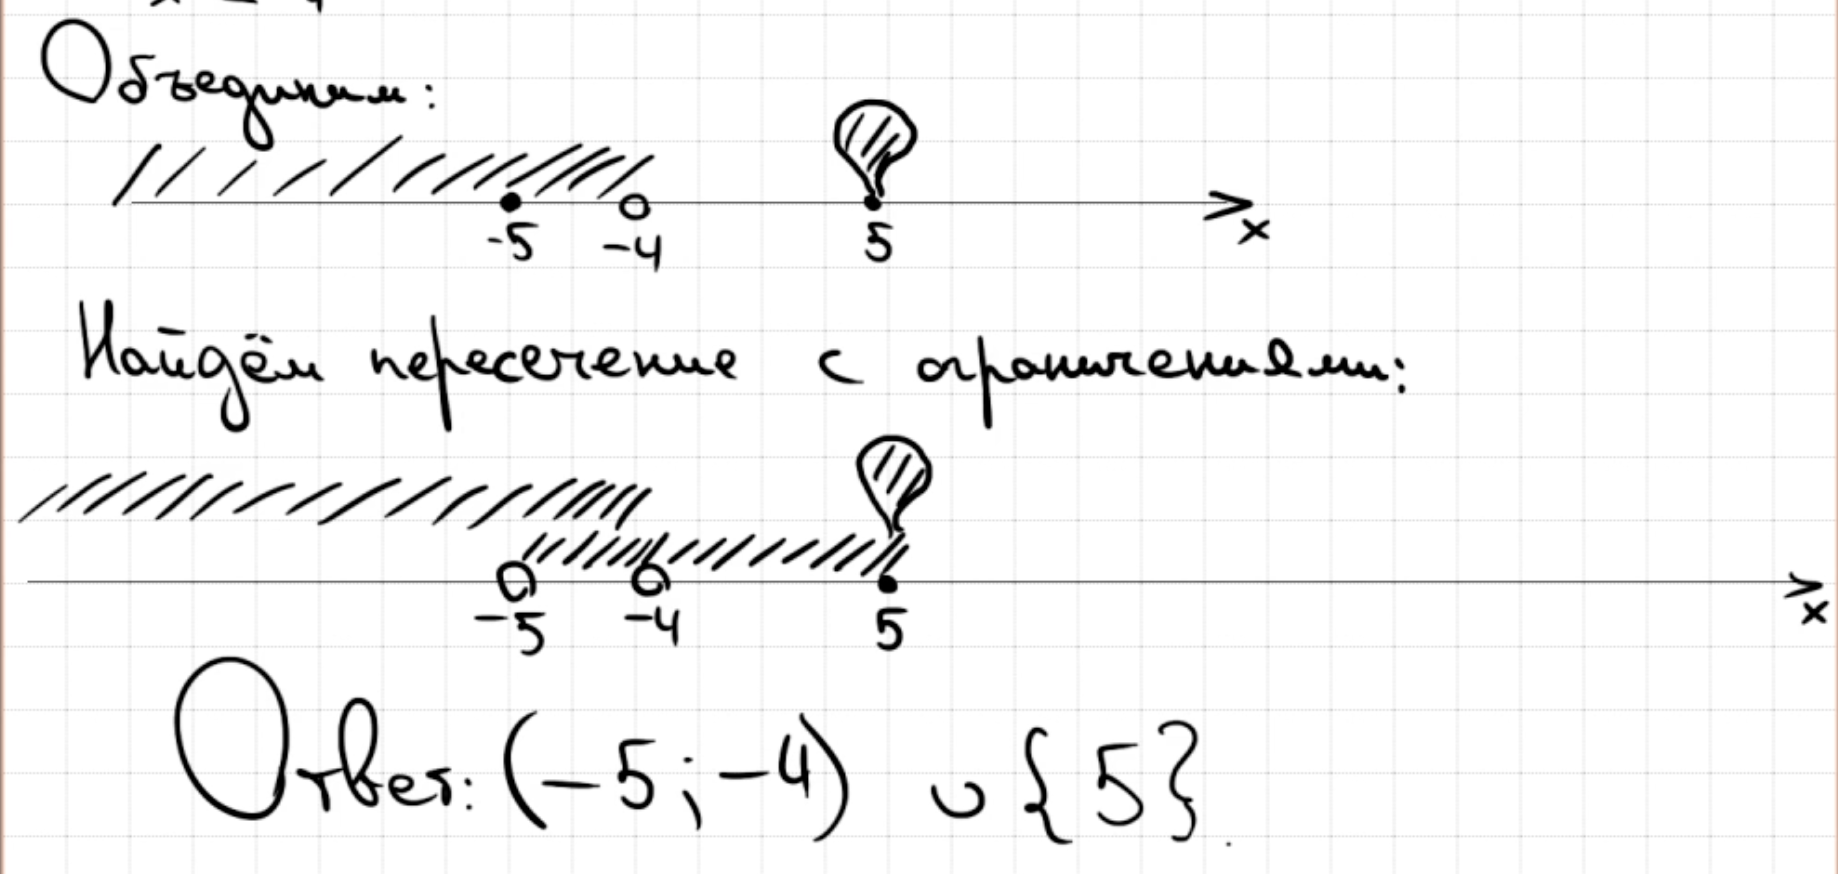 Объединим:
-5 -4 5 x
Найдём пересечение с ограничениями:
-5 -4 5 x
Ответ: (-5; -4) ∪ {5}.